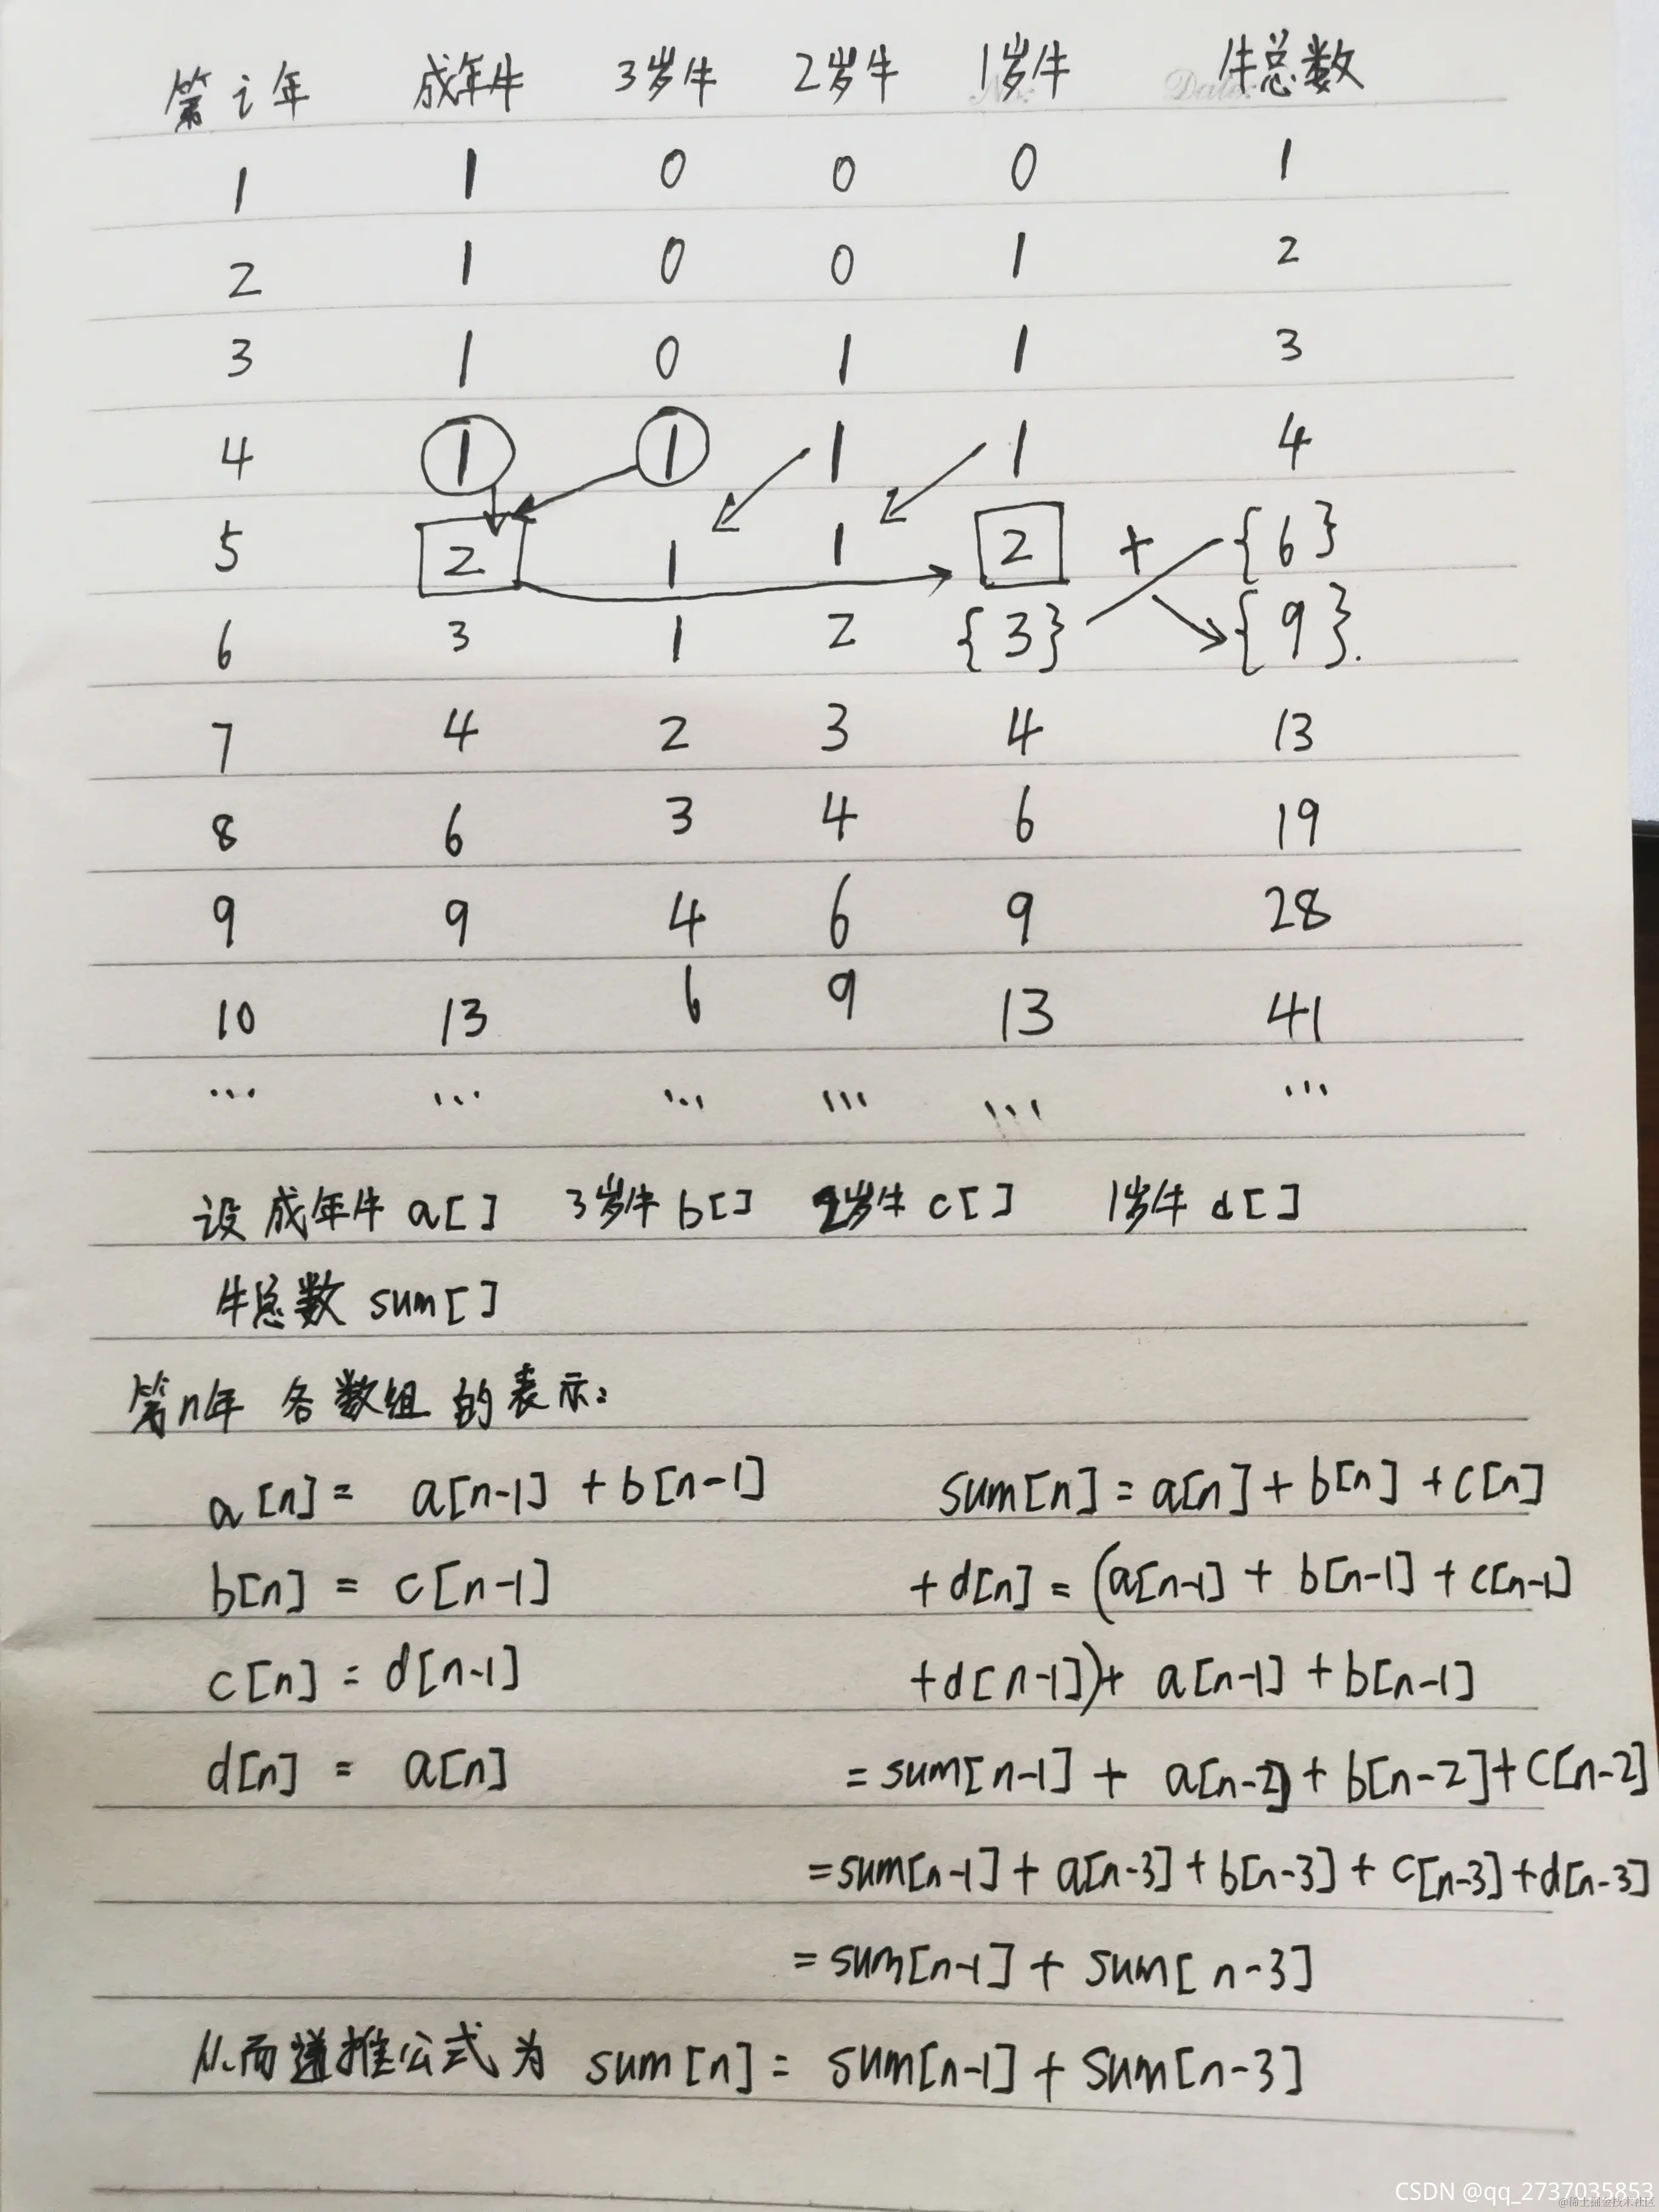 第i年 成年牛 3岁牛 2岁牛 1岁牛 牛总数
1 1 0 0 0 1
2 1 0 0 1 2
3 1 0 1 1 3
4 1 1 1 1 4
5 2 1 1 2 + {6}
6 3 1 2 {3} {9}.
7 4 2 3 4 13
8 6 3 4 6 19
9 9 4 6 9 28
10 13 6 9 13 41
... ... ... ... ... ...
设成年牛 a[] 3岁牛 b[] 2岁牛 c[] 1岁牛 d[]
牛总数 sum[]
第n年 各数组的表示:
a[n] = a[n-1] + b[n-1]
b[n] = c[n-1]
c[n] = d[n-1]
d[n] = a[n]
sum[n] = a[n] + b[n] + c[n]
+ d[n] = (a[n-1] + b[n-1] + c[n-1]
+ d[n-1]) + a[n-1] + b[n-1]
= sum[n-1] + a[n-2] + b[n-2] + c[n-2]
= sum[n-1] + a[n-3] + b[n-3] + c[n-3] + d[n-3]
= sum[n-1] + sum[n-3]
从而递推公式为 sum[n] = sum[n-1] + sum[n-3]
CSDN @qq_2737035853
@稀土掘金技术社区